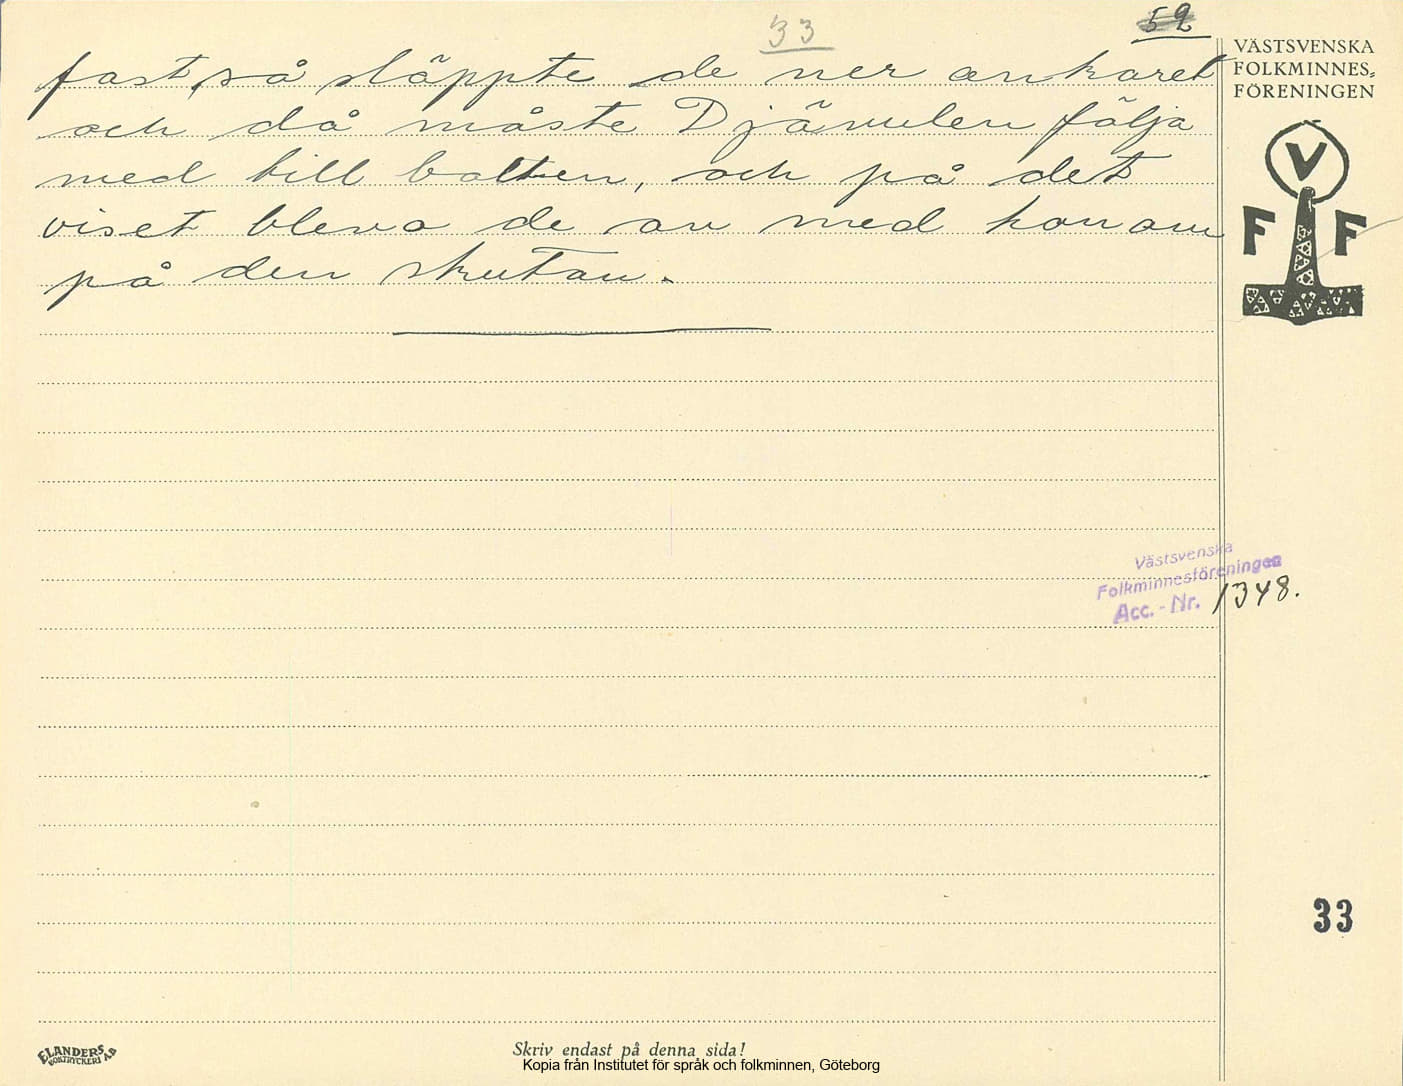 33
52
fast, så släppte de ner ankaret
och då måste Djävulen följa
med till botten, och på det
viset bleva de av med honom
på den skutan.
VÄSTSVENSKA
FOLKMINNES-
FÖRENINGEN
V
F F
Västsvenska
Folkminnesföreningen
Acc.-Nr. 1348.
33
ELANDERS
BOKTRYCKERI AB
Skriv endast på denna sida!
Kopia från Institutet för språk och folkminnen, Göteborg